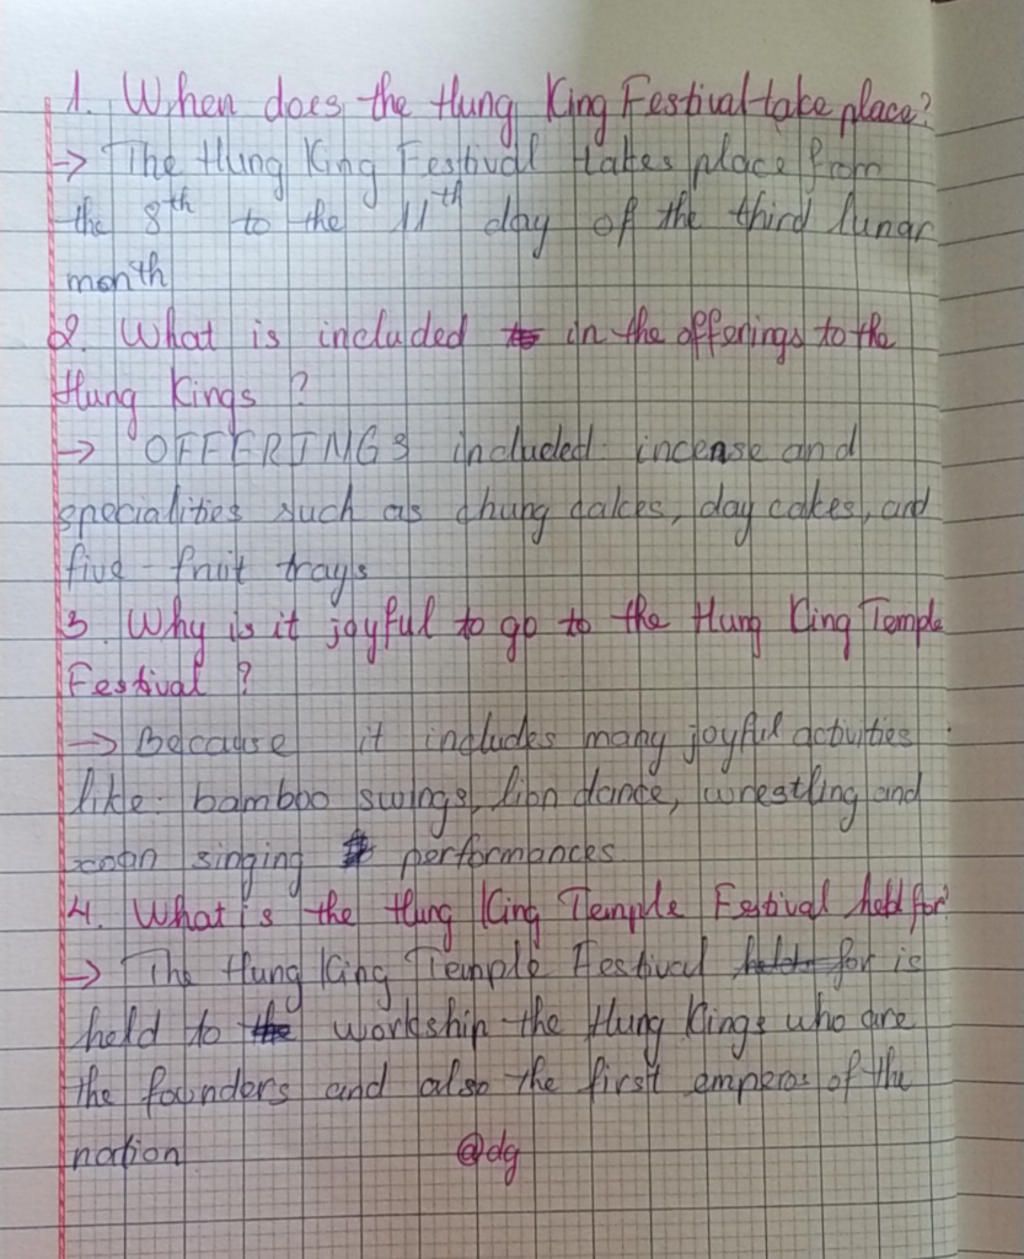 1. When does the Hung King Festival take place?
-> The Hung King Festival takes place from
the 8th to the 11th day of the third lunar
month
2. What is included in the offerings to the
Hung Kings ?
-> OFFERINGS included: incense and
specialities such as chung cakes, day cakes, and
five - fruit trays
3. Why is it joyful to go to the Hung King Temple
Festival ?
-> Because it includes many joyful activities
like: bamboo swings, lion dance, wrestling and
xoan singing performances
4. What is the Hung King Temple Festival held for?
-> The Hung King Temple Festival held for is
held to the workship the Hung Kings who are
the founders and also the first emperos of the
nation
@dg